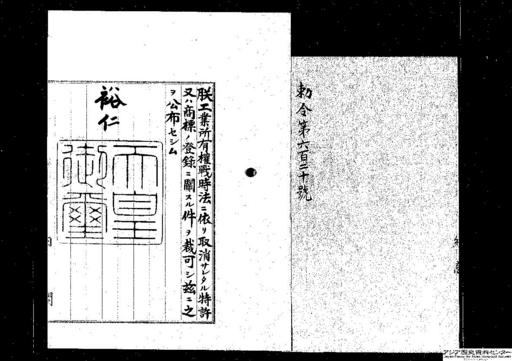 勅令第六百二十號
朕工業所有權戰時法ニ依リ取消サレタル特許
又ハ商標ノ登錄ニ關スル件ヲ裁可シ茲ニ之
ヲ公布セシム
裕仁
天皇
御璽
內
閣
アジア歴史資料センター